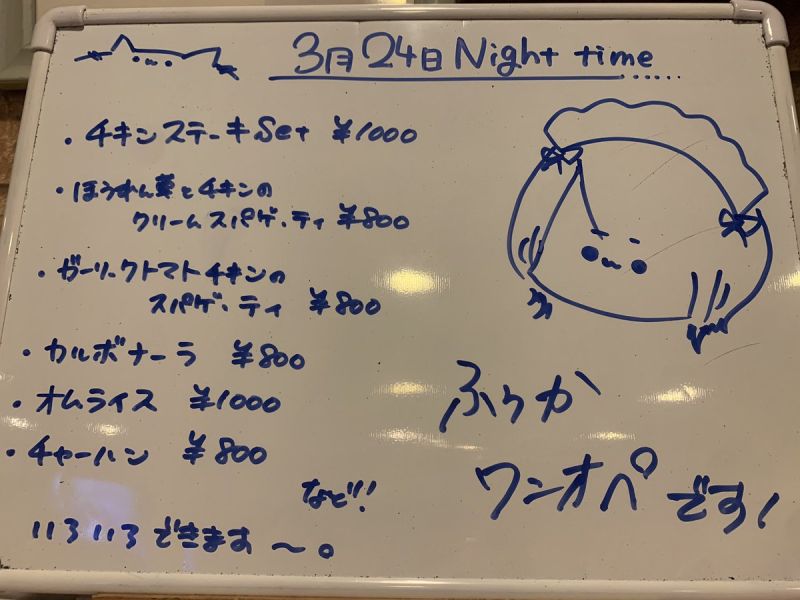 3月24日 Night time
・チキンステーキSet ¥1000
・ほうれん草とチキンの
クリームスパゲッティ ¥800
・ガーリックトマトチキンの
スパゲッティ ¥800
・カルボナーラ ¥800
・オムライス ¥1000
・チャーハン ¥800
など!!
いろいろできます〜。
ふうか
ワンオペです!